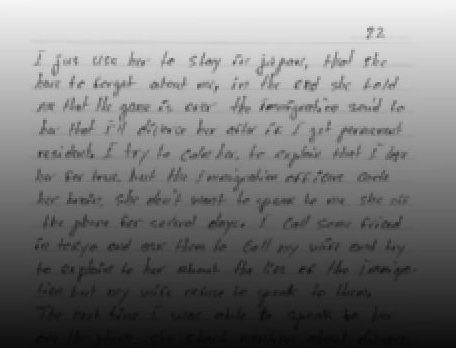 22
I just use her to stay in japan, that she
have to forget about me, in the end she told
me that the game is over the immigration said to
her that I'll divorce her after is I get permanent
resident. I try to calm her, to explain that I
her for true, but the immigration officers
her brain, she don't want to speak to me she off
the phone for several days. I call some friend
in tokyo and ask them to call my wife and try
to explain to her about the lies of the immigra-
tion but my wife refuse to speak to them.
The next time I was able to speak to her
on the phone, she start